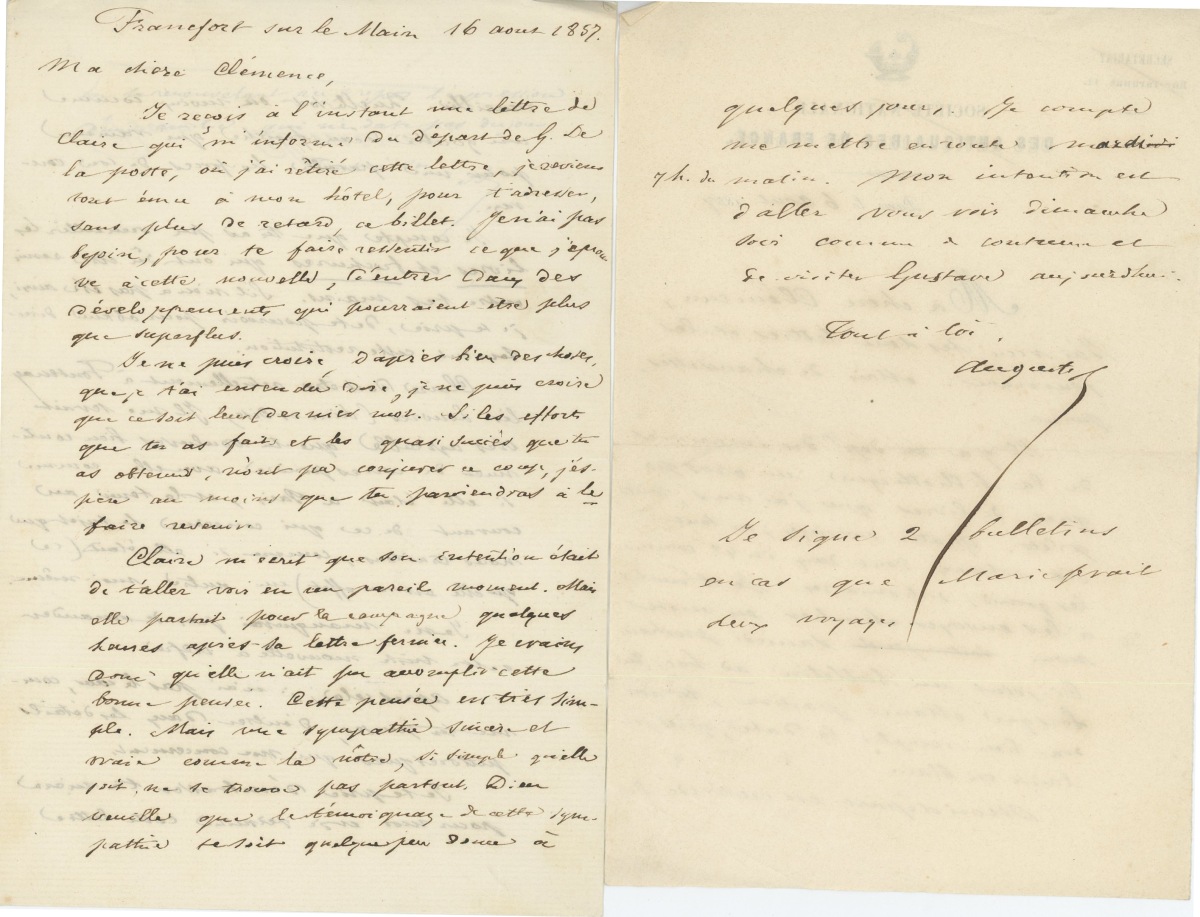 Francfort sur le Mein 16 aout 1857.
Ma chère Clémence,
Je reçois à l'instant une lettre de
Claire qui m'informe du départ de G. De
la poste, où j'ai retiré cette lettre, je reviens
tout ému à mon hôtel, pour t'adresser,
sans plus de retard, ce billet. Je n'ai pas
besoin, pour te faire ressentir ce que j'éprou
ve à cette nouvelle, d'entrer dans des
développements qui pourraient être plus
que superflus.
Je ne puis croire, d'après bien des choses
que je t'ai entendu dire, je ne puis croire
que ce soit leur dernier mot. Si les efforts
que tu as fait et les quasi succès que tu
as obtenus, n'ont pu conjurer ce coup, j'es-
père au moins que tu parviendras à le
faire revenir.
Claire m'écrit que son intention était
de t'aller voir en un pareil moment. Mais
elle partait pour la campagne quelques
heures après sa lettre fermée. Je crains
donc qu'elle n'ait pu accomplir cette
bonne pensée. Cette pensée est très sim-
ple. Mais une sympathie sincère et
vraie comme la nôtre, si simple qu'elle
soit, ne se trouve pas partout. Dieu
veuille que le témoignage de cette sym-
pathie te soit quelque peu douce à
SECRETARIAT
SOCIÉTÉ
DES ANTIQUAIRES DE FRANCE
quelques jours. Je compte
me mettre en route mardi
7 h. du matin. Mon intention est
d'aller vous voir dimanche
soir comme de coutume et
de visiter Gustave aujourd'hui.
Tout à toi.
Auguste
Je signe 2 bulletins
en cas que Marie ferait
deux voyages.